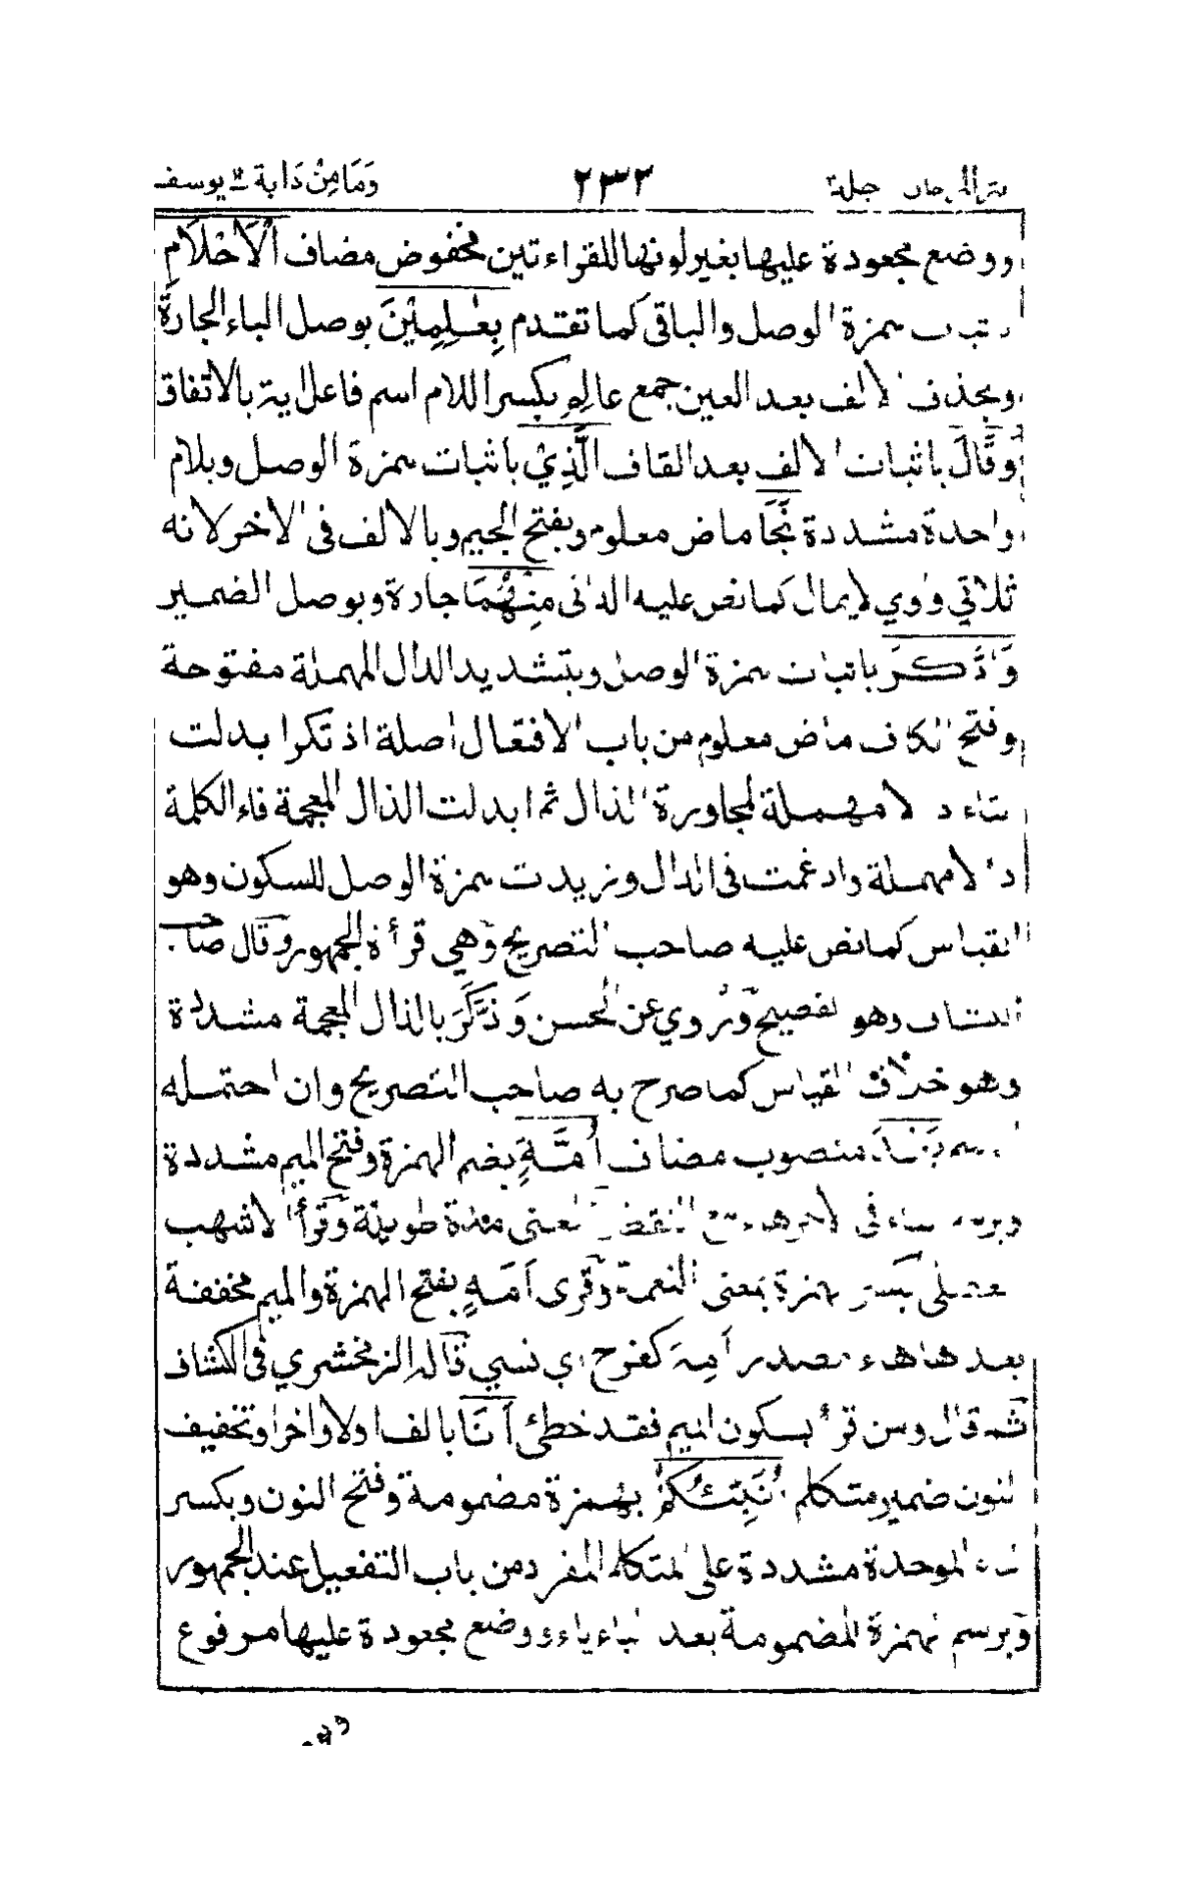 جلد ٢٣٢ وَمَا مِنْ دَابة ١٢ يوسف
ووضع مجعودة عليها بغير لونها للقراءتين مخفوض مضاف اَلْاَحْلَامِ
همزة الوصل والباقى كما تقدم بِعٰلِمِيْنَ بوصل الباء الجارة
وبحذف الالف بعد العين جمع عالم بكسر اللام اسم فاعل بالاتفاق
وَقَالَ باثبات الالف بعد القاف الَّذِيْ باثبات همزة الوصل وبلام
واحدة مشددة نَجَا ماض معلوم وبفتح الجيم وبالالف فى الاخر لانه
ثلاثي واوي لايمال كما نص عليه الدانى مِنْهُمَا جارة وبوصل الضمير
وَادَّكَرَ باثبات همزة الوصل وبتشديد الدال المهملة مفتوحة
وفتح الكاف ماض معلوم من باب الافتعال اصلة اذتكر ابدلت
التاء دالا مهملة لمجاورة الذال ثم ابدلت الذال المعجمة فاء الكلمة
دالا مهملة وادغمت فى الدال وزيدت همزة الوصل للسكون وهو
القياس كما نص عليه صاحب التصريح وهي قرأة الجمهور وقال صاحب
الكشاف وهو الفصيح وروي عن الحسن وَذَّكَّرَ بالذال المعجمة مشددة
وهو خلاف القياس كما صرح به صاحب التصريح وان احتمله
الرسم بَعْدَ منصوب مضاف اُمَّةٍ بضم الهمزة وفتح الميم مشددة
وبرسم التاء فى الاخر هاء مع النقط بمعنى مدة طويلة وقرأ الاشهب
العقيلى بكسر الهمزة بمعنى النعمة وقرى اَمَهٍ بفتح الهمزة والميم مخففة
بعدها هاء مصدر اَمِهَ كفرح اي نسي قاله الزمخشري فى الكشاف
ثم قال ومن قرأ بسكون الميم فقد خطئ اَنَا بالف اولا واخرا وتخفيف
النون ضمير متكلم اُنَبِّئُكُمْ بهمزة مضمومة وفتح النون وبكسر
الباء الموحدة مشددة على المتكلم المفرد من باب التفعيل عند الجمهور
وبرسم الهمزة المضمومة بعد الباء ياء ووضع مجعودة عليها مرفوع